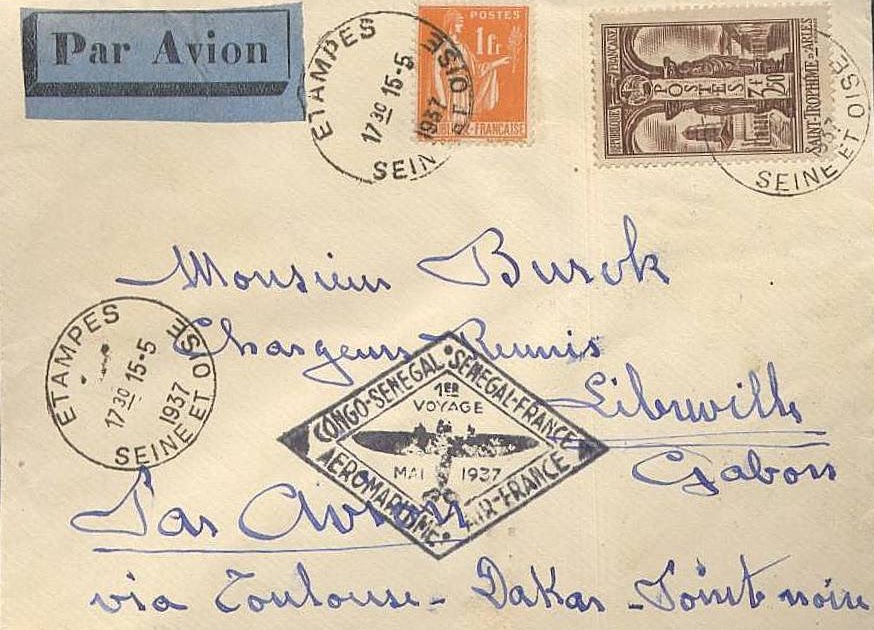 Par Avion
POSTES
1Fr
REPUBLIQUE-FRANÇAISE
REPUBLIQUE FRANÇAISE
POSTES
3f50
SAINT-TROPHIME D'ARLES
ETAMPES
17 30 15-5
1937
SEINE ET OISE
1937
SEINE ET OISE
Monsieur Burok
Chargeurs Reunis
Libreville
Gabon
ETAMPES
17 30 15-5
1937
SEINE ET OISE
CONGO-SENEGAL • SENEGAL-FRANCE
1ER
VOYAGE
MAI 1937
AEROMARITIME • AIR-FRANCE
Par Avion
via Toulouse - Dakar - Pointe noire